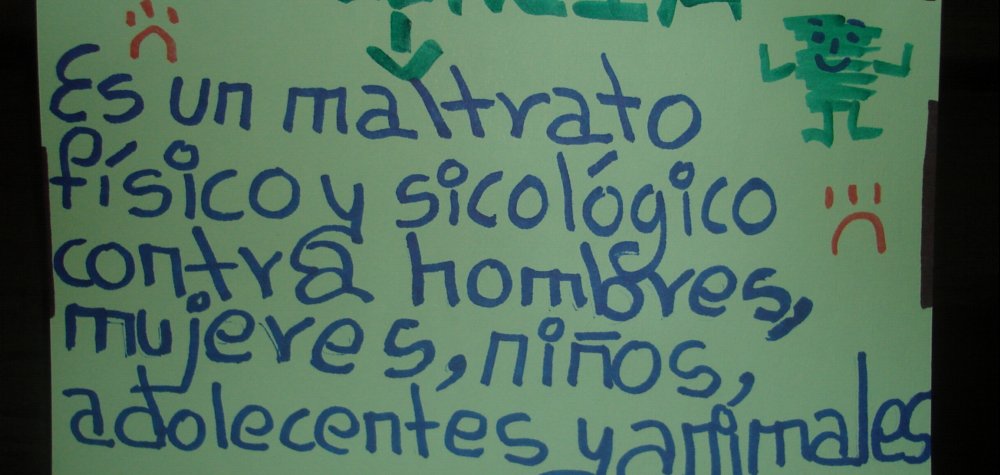 Es un maltrato
físico y sicológico
contra hombres,
mujeres, niños,
adolecentes y animales